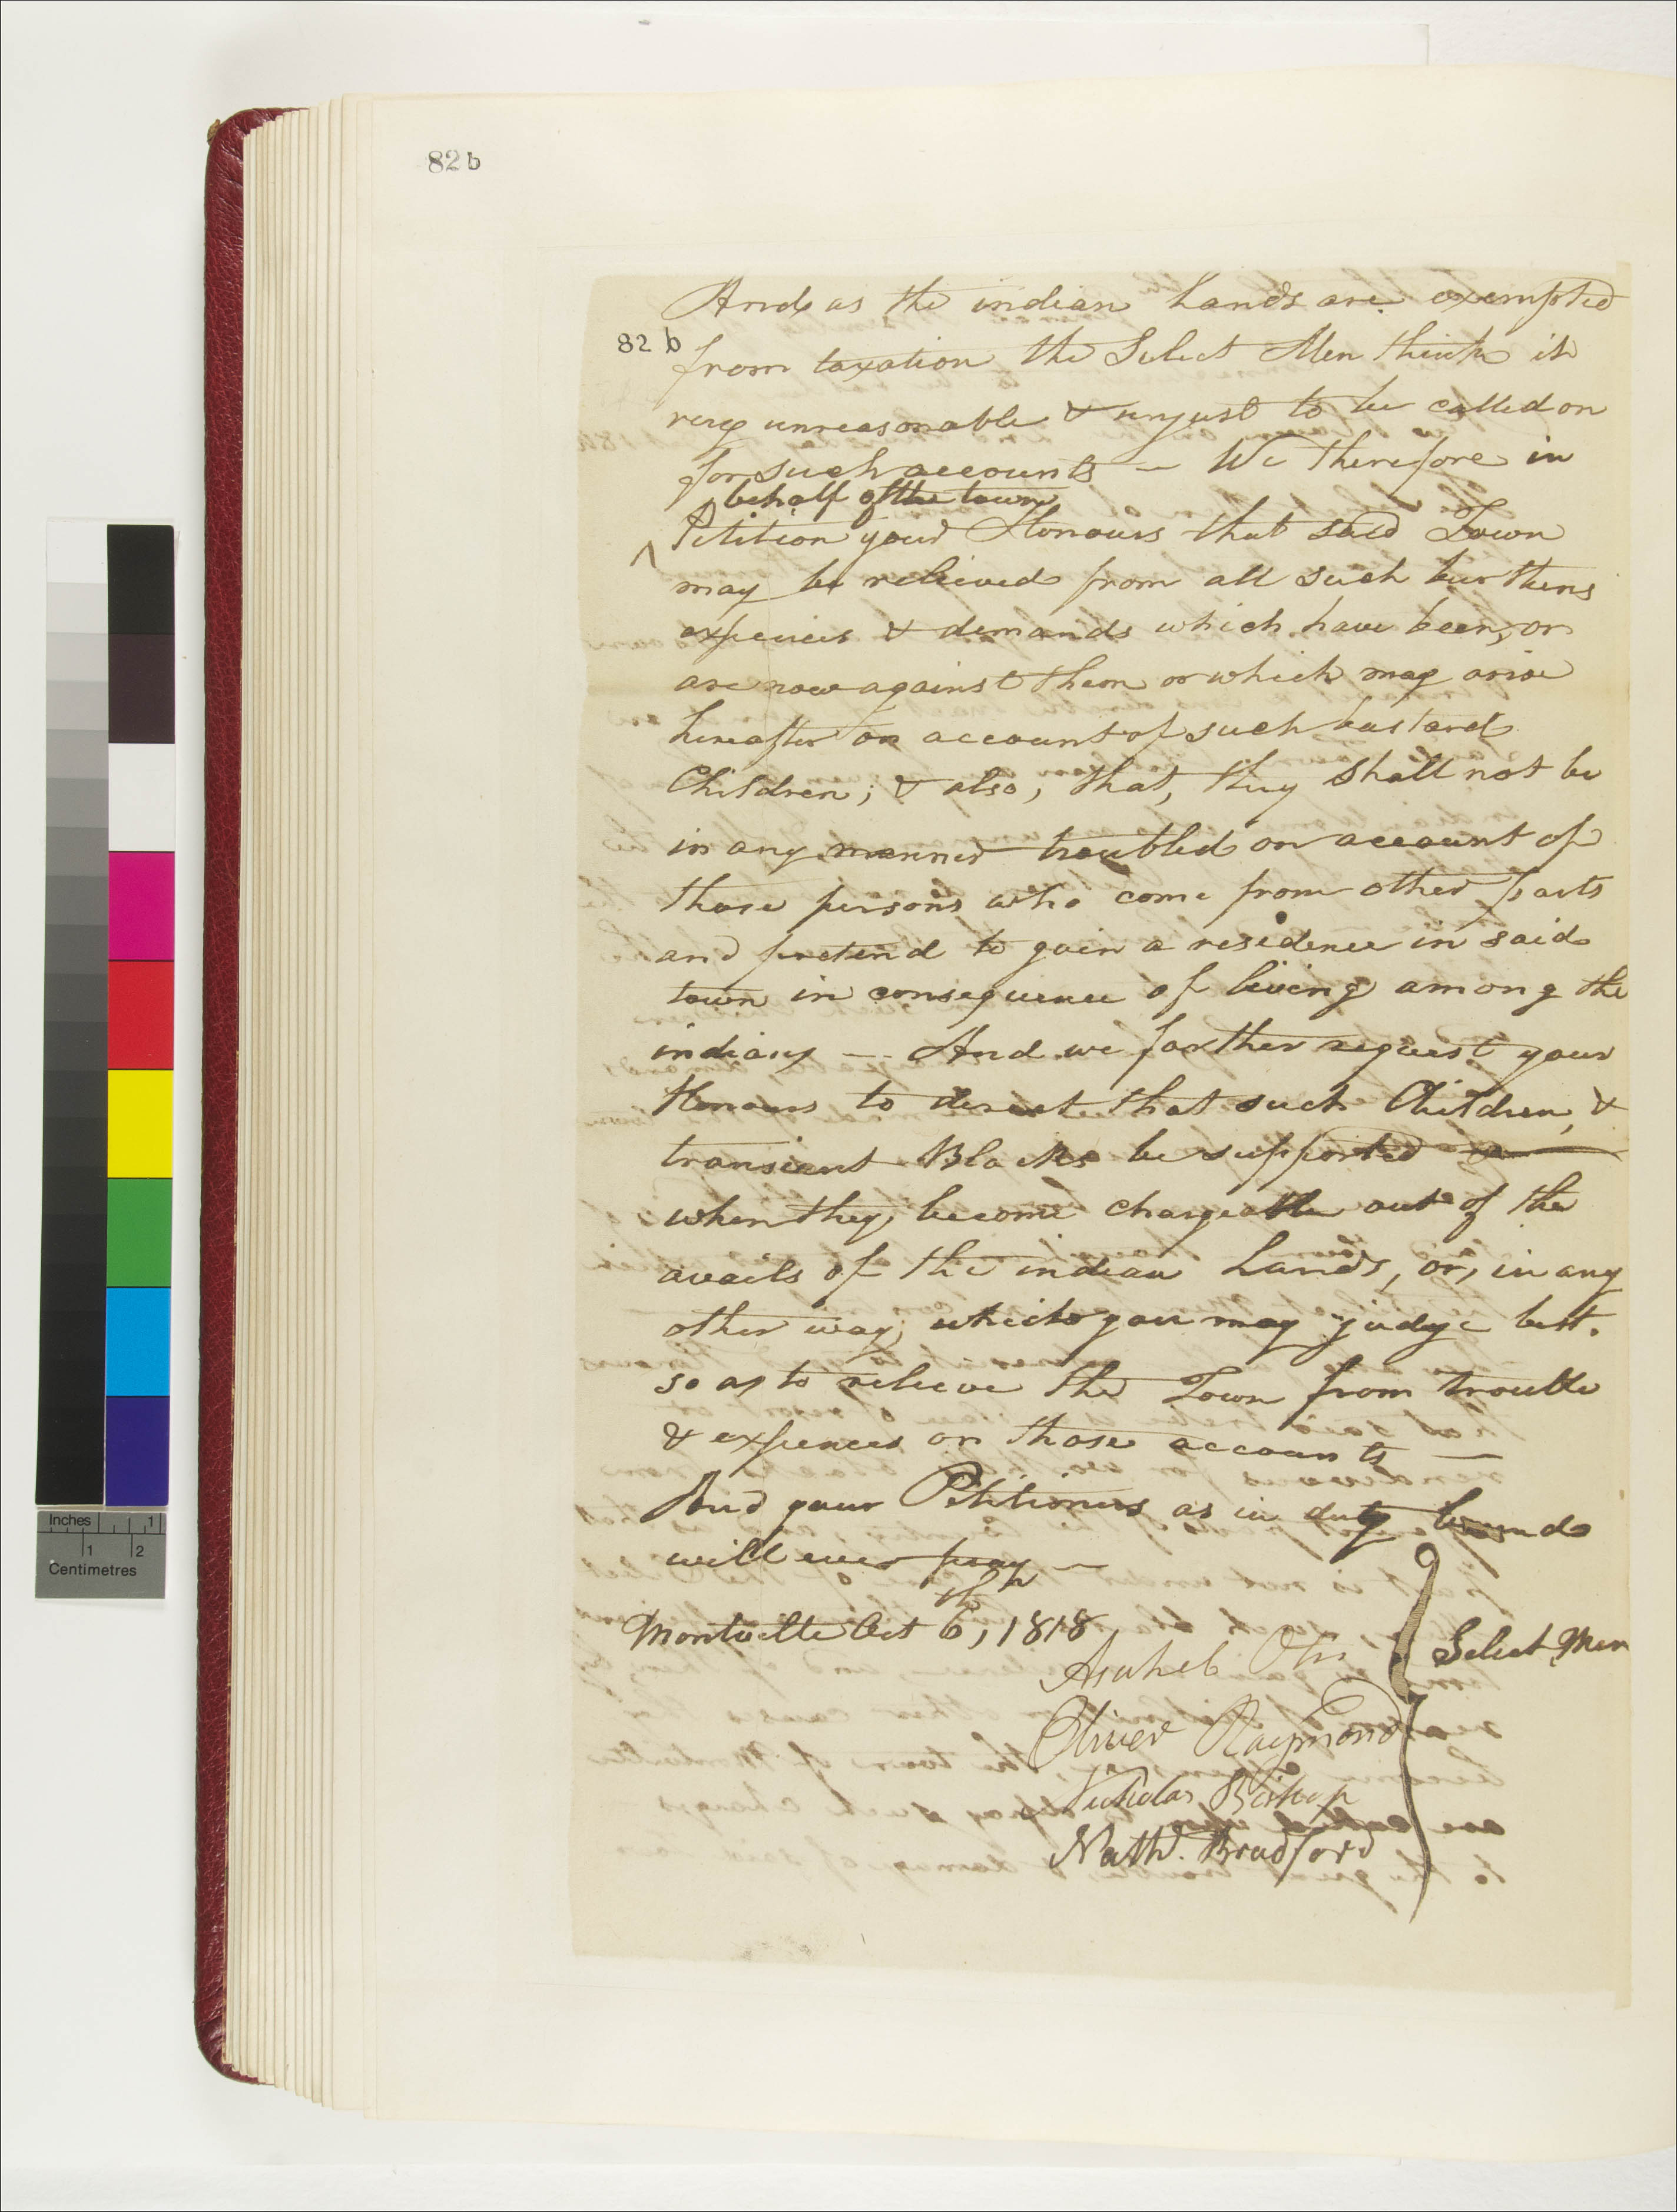 82 b
And as the indian Lands are exempted
82 b
from taxation the Select Men think it
very unreasonable & unjust to be called on
for such accounts — We therefore in
behalf of the town
^ Petition your Honours that said Town
may be relieved from all such burthens
expences & demands which have been, or
are now against them or which may arise
hereafter on account of such bastard
Children; & also, that, they shall not be
in any manner troubled on account of
those persons who come from other parts
and pretend to gain a residence in said
town in consequence of living among the
indians — And we farther request your
Honours to direct that such Children, &
transient Blacks be supported
when they become chargeable out of the
avails of the indian Lands, or, in any
other way, which you may judge best.
so as to relieve the Town from trouble
& expences on those accounts —
And your Petitioners as in duty bound
will ever pray —
Montville Oct 6th, 1818
Asahel Otis
Select Men
Oliver Raymond
Nicholas Bishop
Nathl. Bradford
Inches 1
1 2
Centimetres